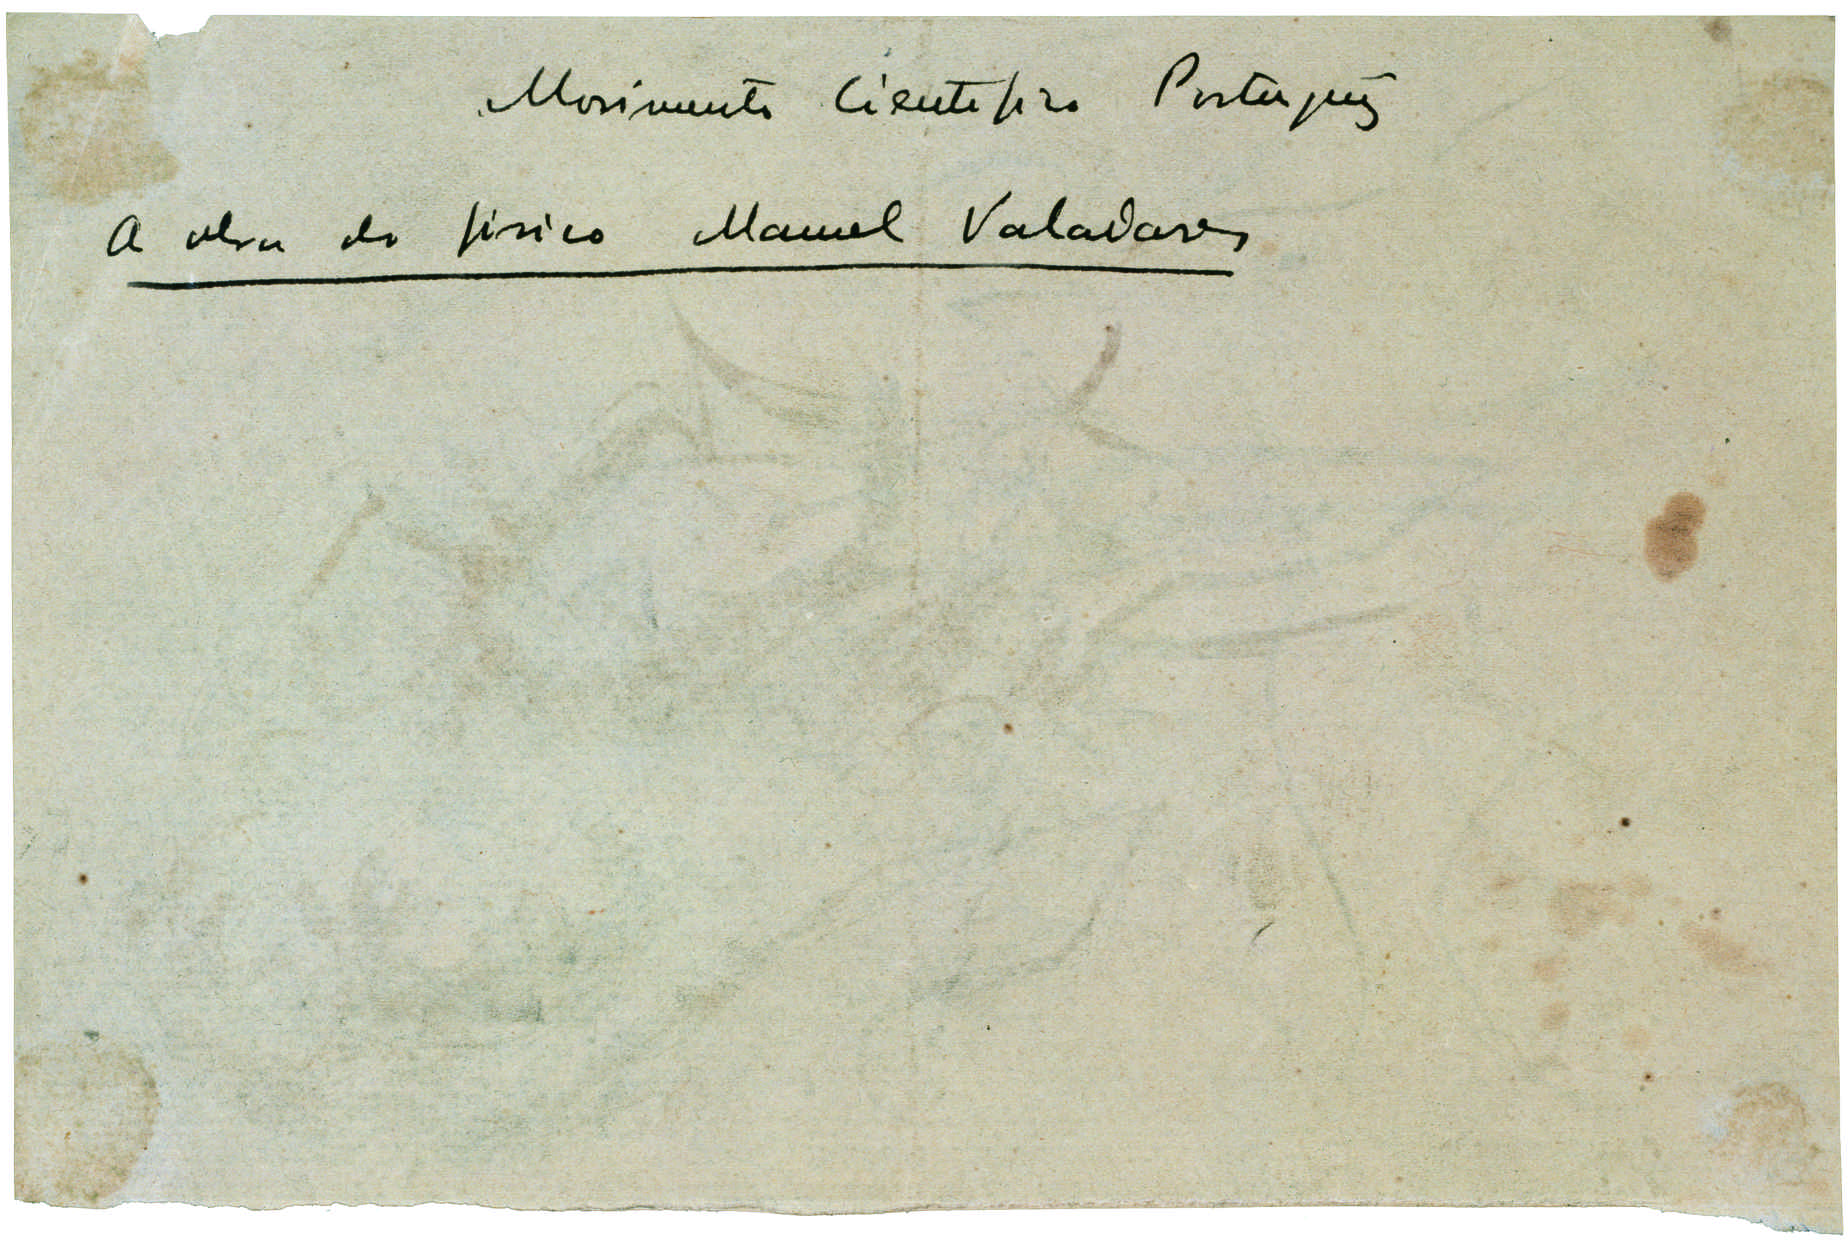 Movimento Cientifico Português
A obra do físico Manuel Valadares